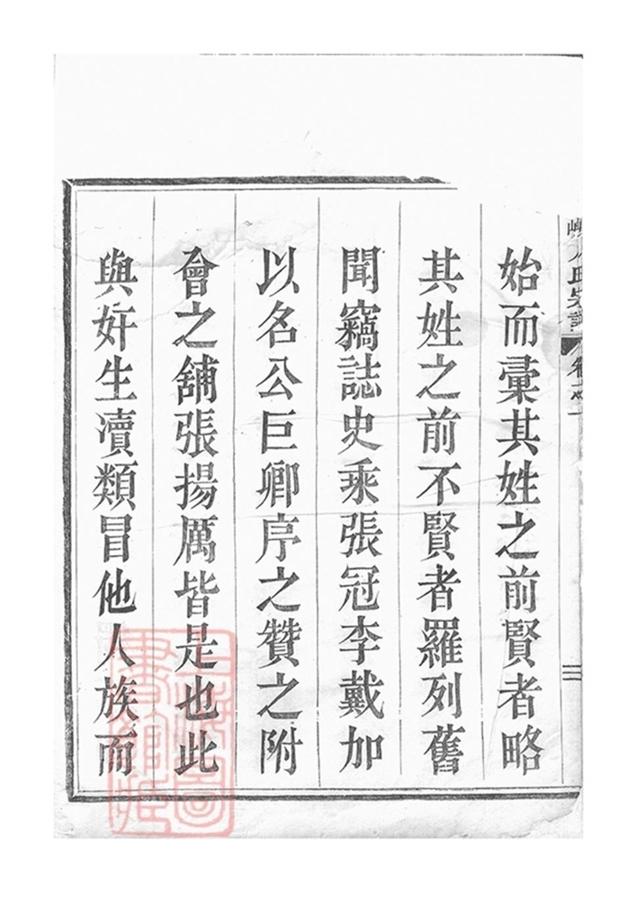 始而彙其姓之前賢者略
其姓之前不賢者羅列舊
聞竊誌史乘張冠李戴加
以名公巨卿序之贊之附
會之舖張揚厲皆是也此
與奸生瀆類冒他人族而